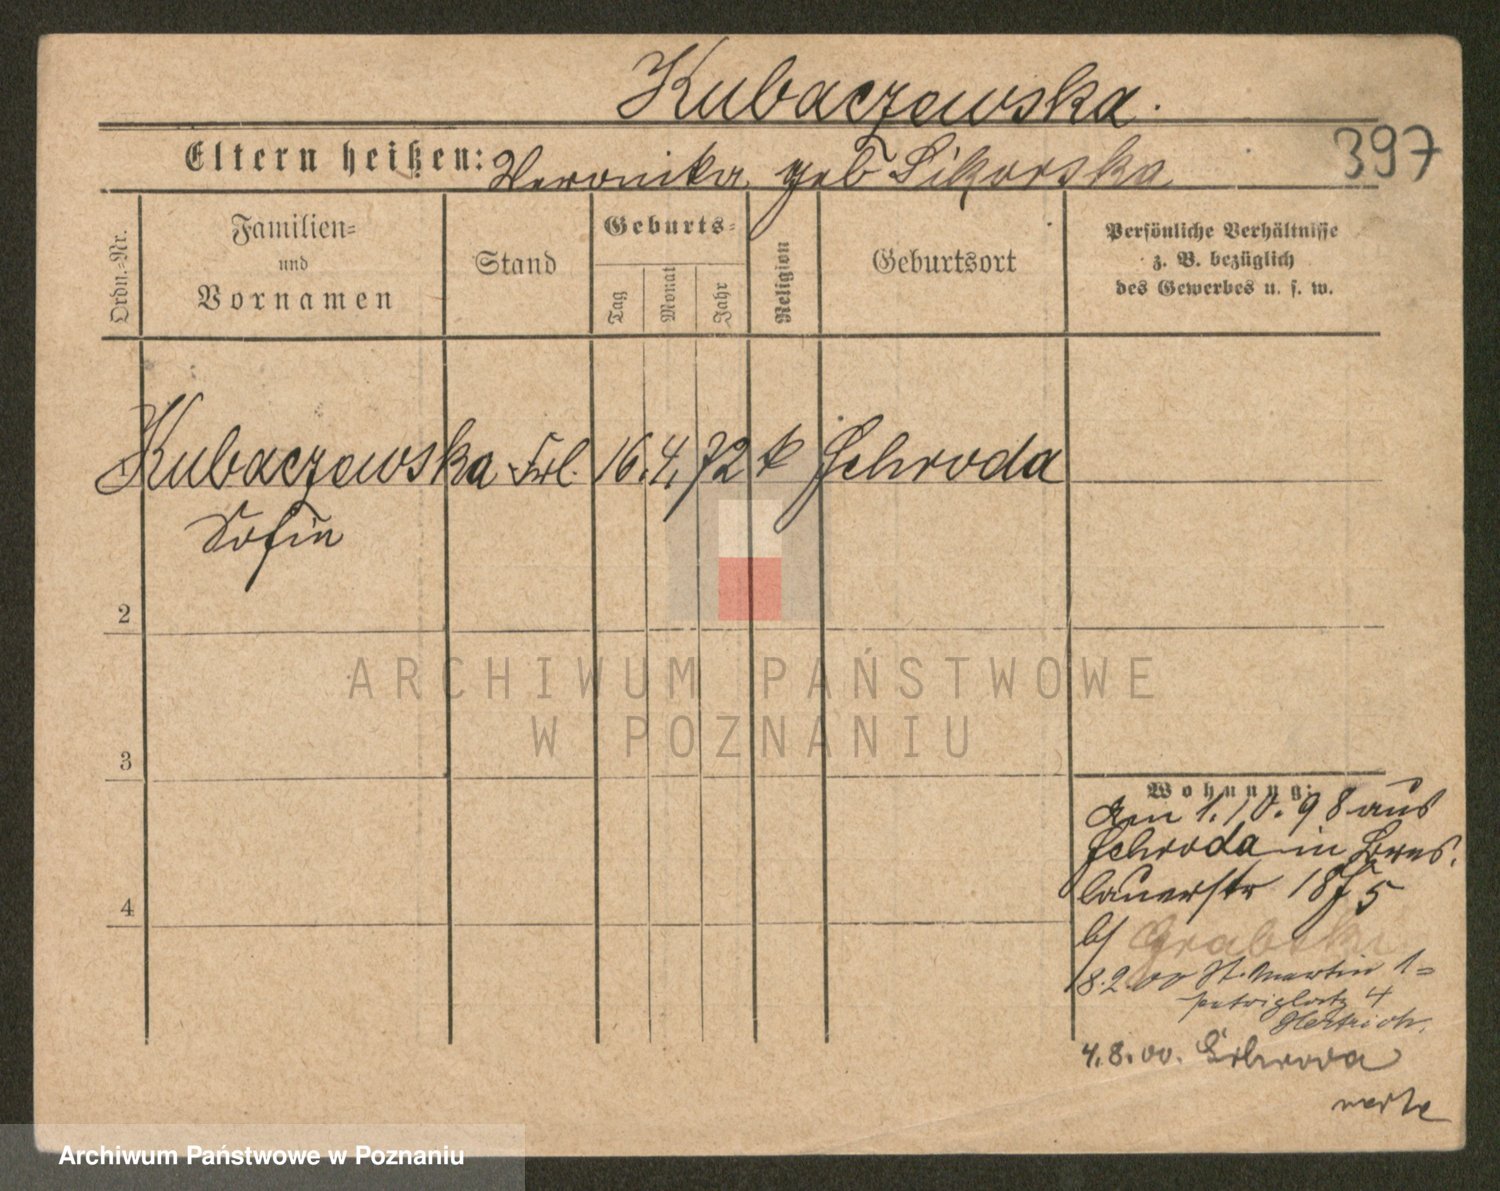 Kubaczewska.
Eltern heißen: Veronika geb Sikorska
397
Ordn.=Nr.
Familien=
und
Vornamen
Stand
Geburts=
Tag
Monat
Jahr
Religion
Geburtsort
Persönliche Verhältnisse
z. B. bezüglich
des Gewerbes u. s. w.
Kubaczewska Frl. 16. 4. 72 k Schroda
Sofie
2
3
4
ARCHIWUM PAŃSTWOWE
W POZNANIU
Wohnung:
am 1. 10. 98 aus
Schroda in Bres-
lauerstr 18/5
b/ Grabski
8.2.00 St. Martin 1=
4
4.8.00. Schroda
Archiwum Państwowe w Poznaniu